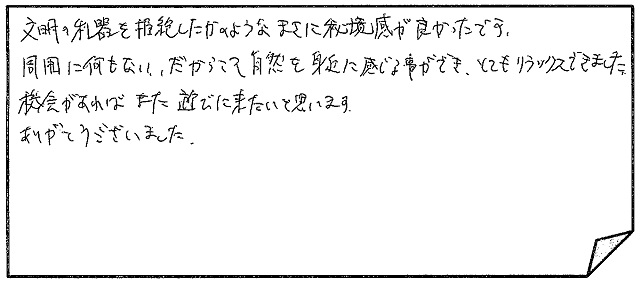 文明の利器を拒絶したかのようなまさに秘境感が良かったです。
周囲に何もない、だからこそ自然を身近に感じる事ができ、とてもリラックスできました。
機会があればまた遊びに来たいと思います。
ありがとうございました。